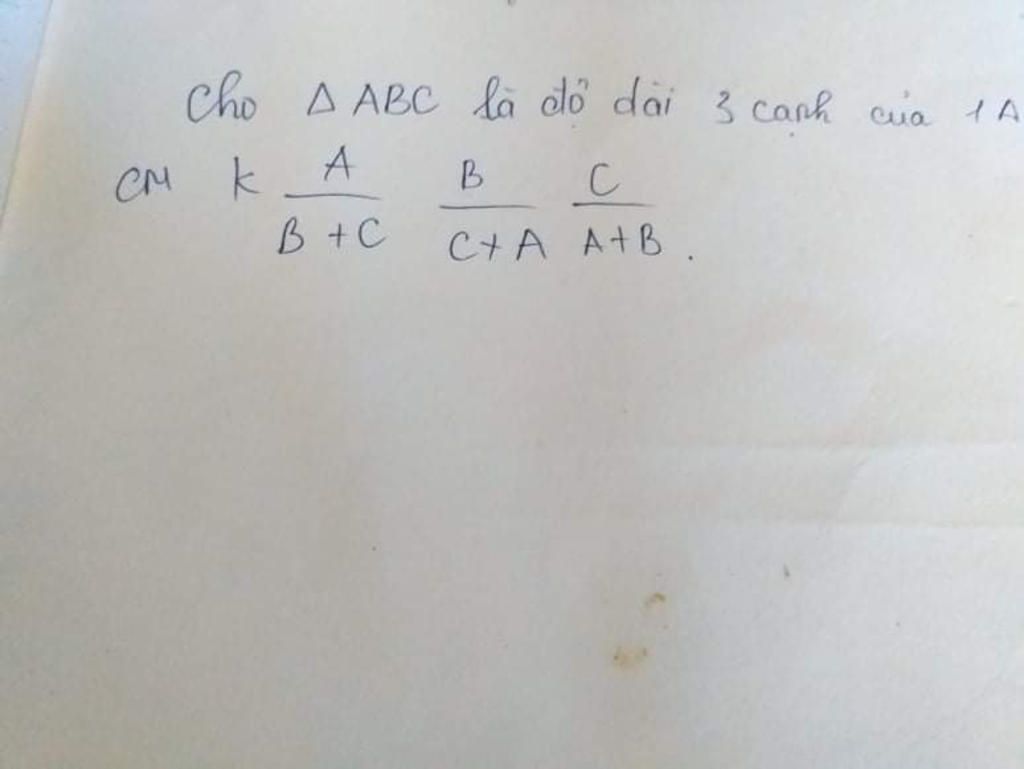 Cho Δ ABC là độ dài 3 cạnh của 1 A
CM k A/B+C B/C+A C/A+B.